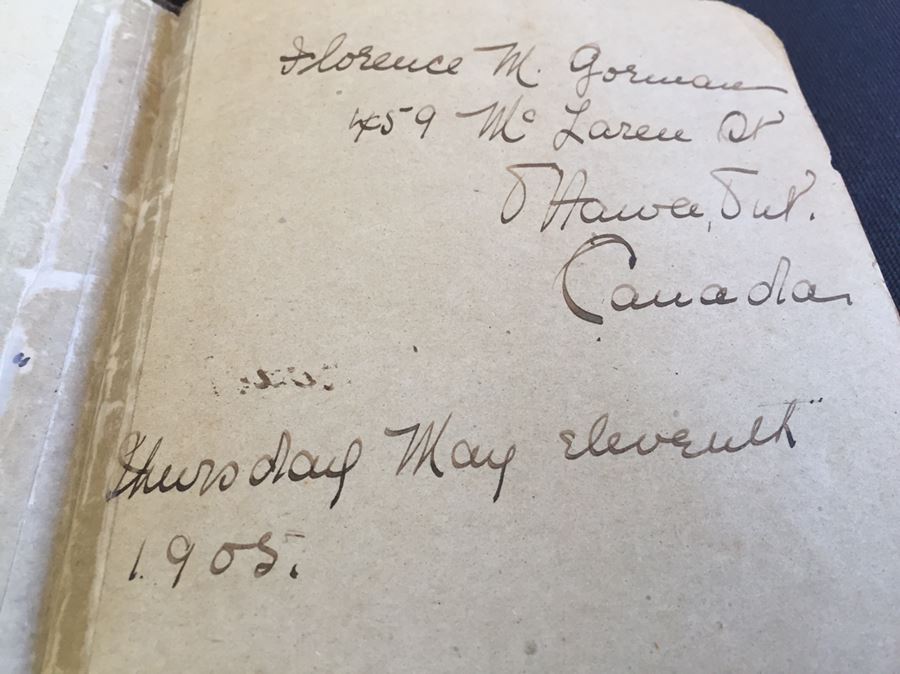 Florence M. Gorman
459 Mc Laren St
Ottawa, Ont.
Canada
Thursday May eleventh
1905.